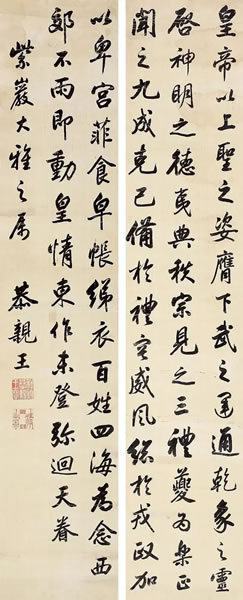 皇帝以上聖之姿膺下武之運通乾象之靈
啓神明之德夷典秩宗見之三禮夔為樂正
聞之九成克己備於禮室威風總於戎政加
以卑宮菲食皁帳綈衣百姓四海為念西
郊不雨即動皇情東作未登弥迴天眷
紫巖大雅之属
恭親王